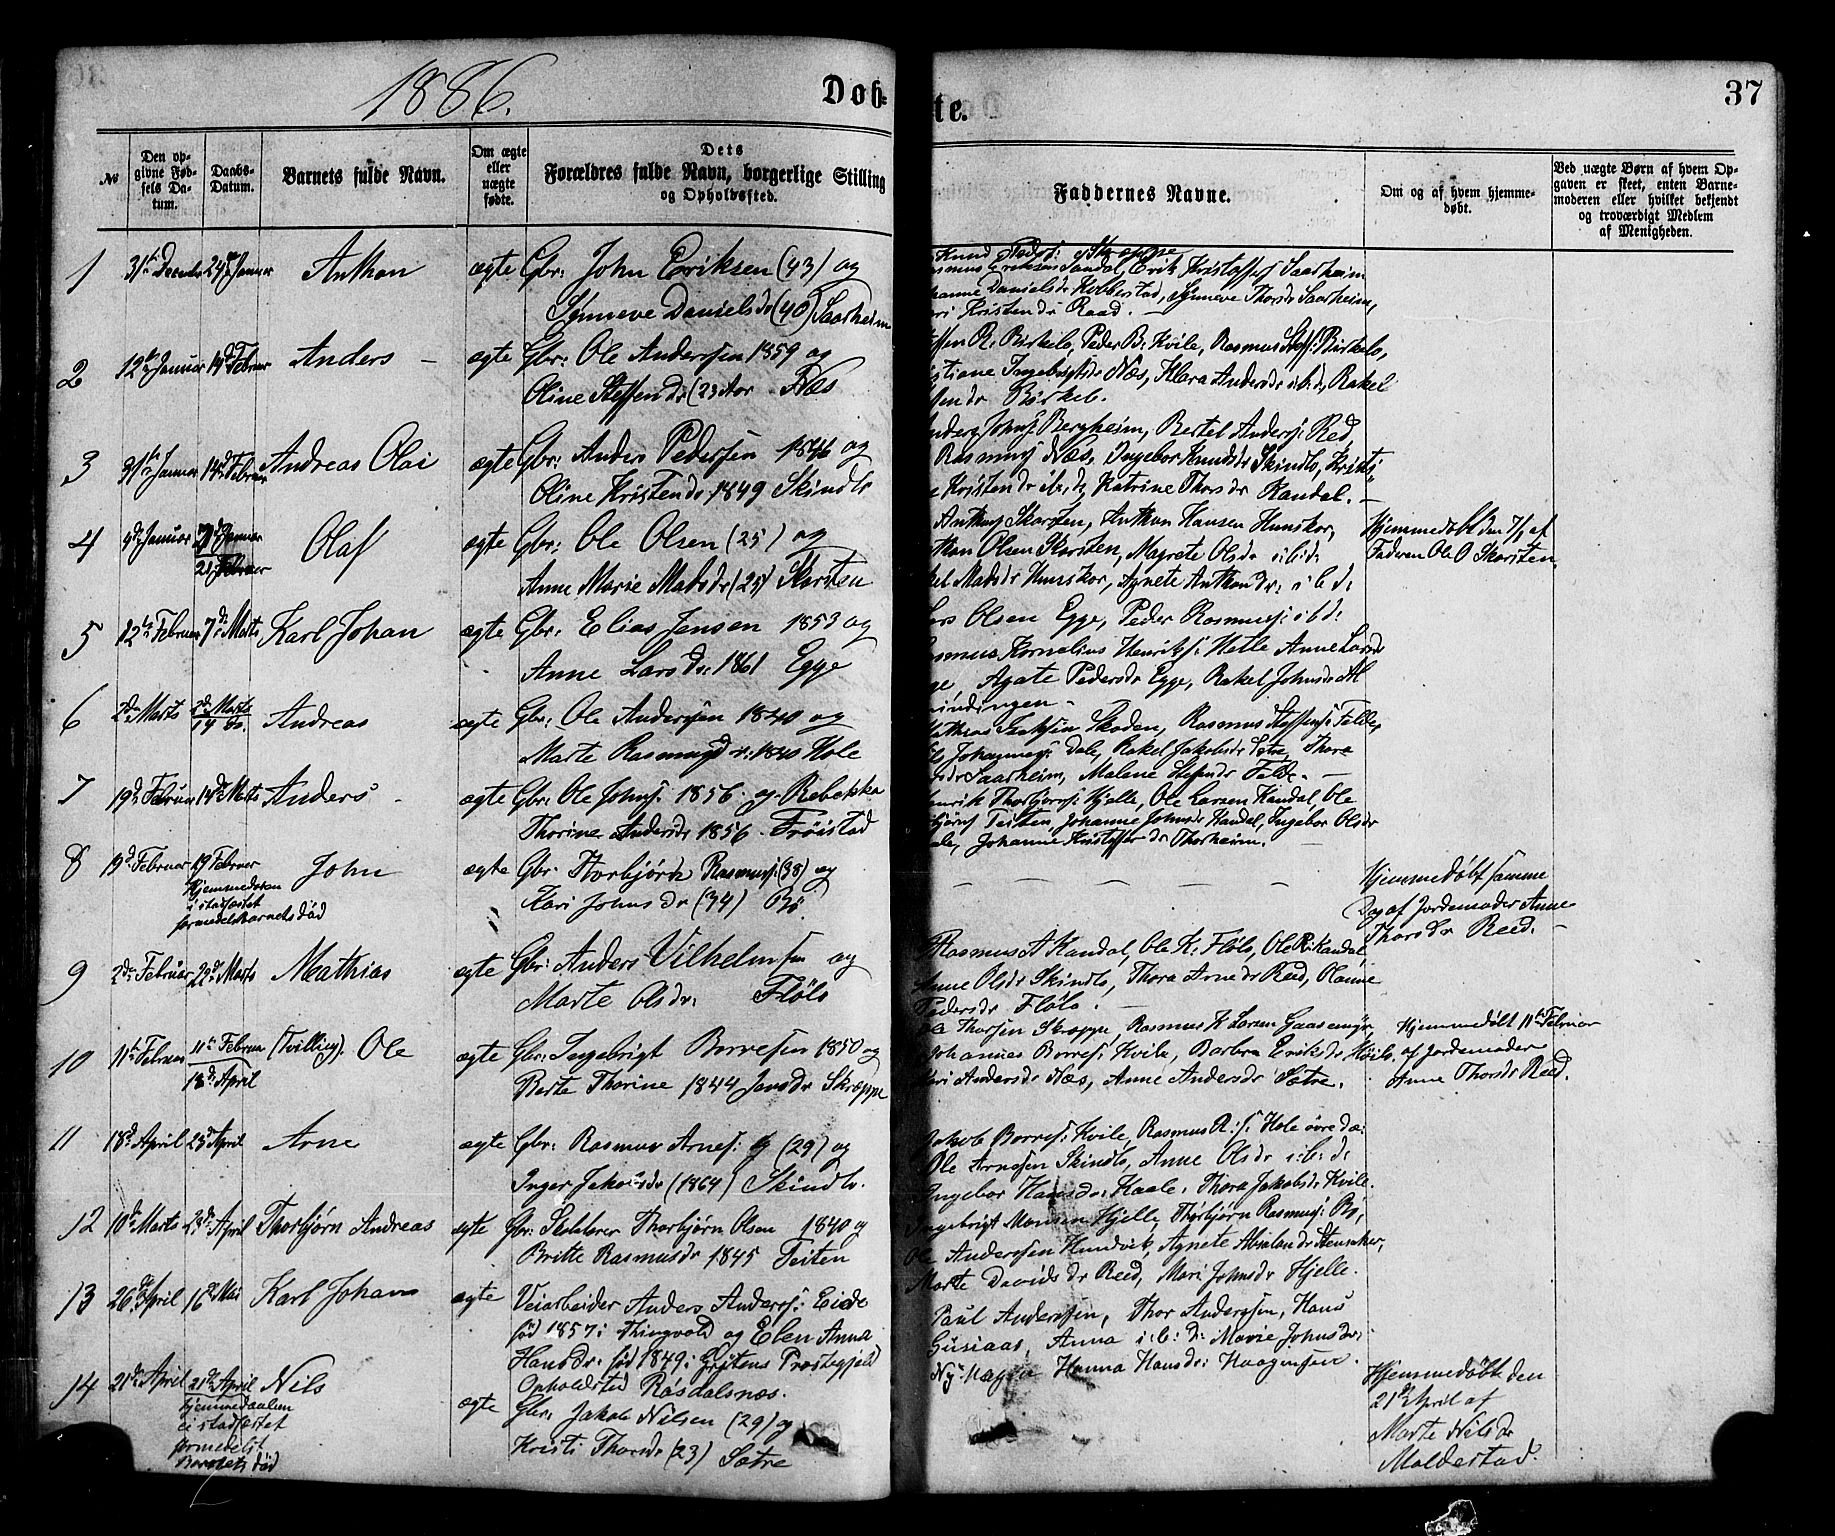 1886.
Døbte.
37
№
Den opgivne Fødsels Datum.
Daabs-Datum.
Barnets fulde Navn.
Om ægte eller uægte fødte.
Dets Forældres fulde Navn, borgerlige Stilling og Opholdssted.
Faddernes Navne.
Om og af hvem hjemmedøbt.
Ved uægte Børn af hvem Opgaven er skeet, enten Barnemoderen eller hvilket bekjendt og troværdigt Medlem af Menigheden.
1 31te December 24de Januar Anthon ægte Gbr: John Eriksen (43) og
Synneve Danielsdr (40) Saarheim
Knud Peders: Skreppe
Eriksen Sandal, Erik Kristoffers: Saarheim
Danielsdr Kobberstad, Synneve Thorsdr Saarheim,
Kristendr Raad. —
2 12te Januar 14de Februar Anders — ægte Gbr: Ole Anderssen 1859 og
Oline Steffendr (23 Aar Næs
R. Birkelo, Peder B. Kvile, Rasmus Steffs: Birkelo,
Ingebrigtsdr Næs, Klara Andersdr i.b.d., Rakel
Birkelo.
3 31te Januar 14de Februar Andreas Olai ægte Gbr: Anders Pederssen 1846 og
Oline Kristendr: 1849 Skindlo
Johns: Bergheim, Bertel Anders: Red,
Rasmus Næs, Ingebor Knudsdr Skindlo, Kristi
Kristendr i.b.d, Katrine Thorsdr Kandal. —
4 Januar Januar
21 Februar Olaf ægte Gbr: Ole Olsen (25) og
Anne Marie Madsdr (25) Skarsten
Skarsten, Anthon Hansen Hunskor,
Olsen Skarsten, Magrete Olsdr i:b:d:
Madsdr Hunskor, Agnete Anthondr: i b d:
Hjemmedøbt den 7/1 af
Faderen Ole O Skarsten
5 12te Februar 7de Marts Karl Johan ægte Gbr: Elias Jensen 1853 og
Anne Larsdr: 1861 Egge
Olsen Egge, Peder Rasmus: i b d:
Kornelius Henriks: Hetle Anne Larsdr
Agate Pedersdr Egge, Rakel Johnsdr
6 2de Marts 2de Marts
14 Ds. Andreas ægte Gbr: Ole Anderssen 1840 og
Marte Rasmusdr: 1840 Hole
Skoden, Rasmus Steffens: Felde,
Johannes: Dale, Rakel Jakobsdr Sætre Thora
Saarheim, Malene Stefendr Felde. —
7 19de Februar 14de Marts Anders ægte Gbr: Ole Johns: 1856 og Rebekka
Thorine Andersdr 1856 Frøistad
Thorbjørns: Hjelle, Ole Larsen Kandal, Ole
Teiten, Johanne Johnsdr Kandal, Ingebor Olsdr
Johanne Kristofferdr Thorheim.
8 19de Februar 19 Februar
Hjemmedøben
i stadfæstet
formedelst Barnets død
John ægte Gbr: Thorbjørn Rasmus: (38) og
Kari Johnsdr (34) Bø
— — — — — —
Hjemmedøbt samme
Dag af Jordemoder Anne
Thorsdr Reed. —
9 2de Februar 22de Marts Mathias ægte Gbr: Anders Vilhelmsen og
Marte Olsdr: Fløle
Rasmus A Kandal, Ole K. Fløle, Ole R. Kandal,
Anne Olsdr Skindlo, Thora Arnedr Reed, Olanne
Pedersdr Fløle.
10 11te Februar 11te Februar
18de April (Tvilling). Ole ægte Gbr: Ingebrigt Borresen 1850 og
Berte Thorine 1844 Jansdr Skreppe
Thorsen Skreppe, Rasmus K Larsen Gaasemyr,
Johannes Borres: Kvile, Barbra Eriksdr Høilo,
Andersdr Næs, Anne Andersdr Sætre.
Hjemmedøbt 11te Februar
af Jordemoder
Anne Thorsdr Reed.
11 18de April 25de April Arne ægte Gbr: Rasmus Arnes: (29) og
Inger Jakobsdr (1864) Skindlo.
Jakob Borres: Kvile, Rasmus R:s: Hole øvre
Ole Arnesen Skindlo, Anne Olsdr i:b:d:
Ingebor Hansdr: Kaale, Thora Jakobsdr Kvile.
12 10de Marts April Thorbjørn Andreas ægte Gbr: Skolelærer Thorbjørn Olsen 1840 og
Britte Rasmusdr 1845 Teiten
Ingebrigt Monsen Hjelle, Thorbjørn Rasmus: Bø,
Ole Anderssen Hundvik, Agnete
Marte Davidsdr Reed, Mari Johnsdr Hjelle.
13 26de April 16de Mai Karl Johan ægte Veiarbeider Anders Anders: Eide
fød 1857 i Thingvold og Elen Anna
Hansdr: fød 1849 i Grytens Præstegjæld
Opholdsted Røsdalsnæs.
Paul Anderssen, Thor Anderssen, Hans
Gusiaas, Anna i:b:d: Marie Johnsdr:
Hanna Hansdr: Haagensen.
14 21de April 21de April
Hjemmedaaben
ei stadfæstet
formedelst
Barnets død
Nils ægte Gbr: Jakob Nilsen (29) og
Kristi Thorsdr (23) Sætre
Hjemmedøbt den
21de April af
Marte Nilsdr
Moldestad.